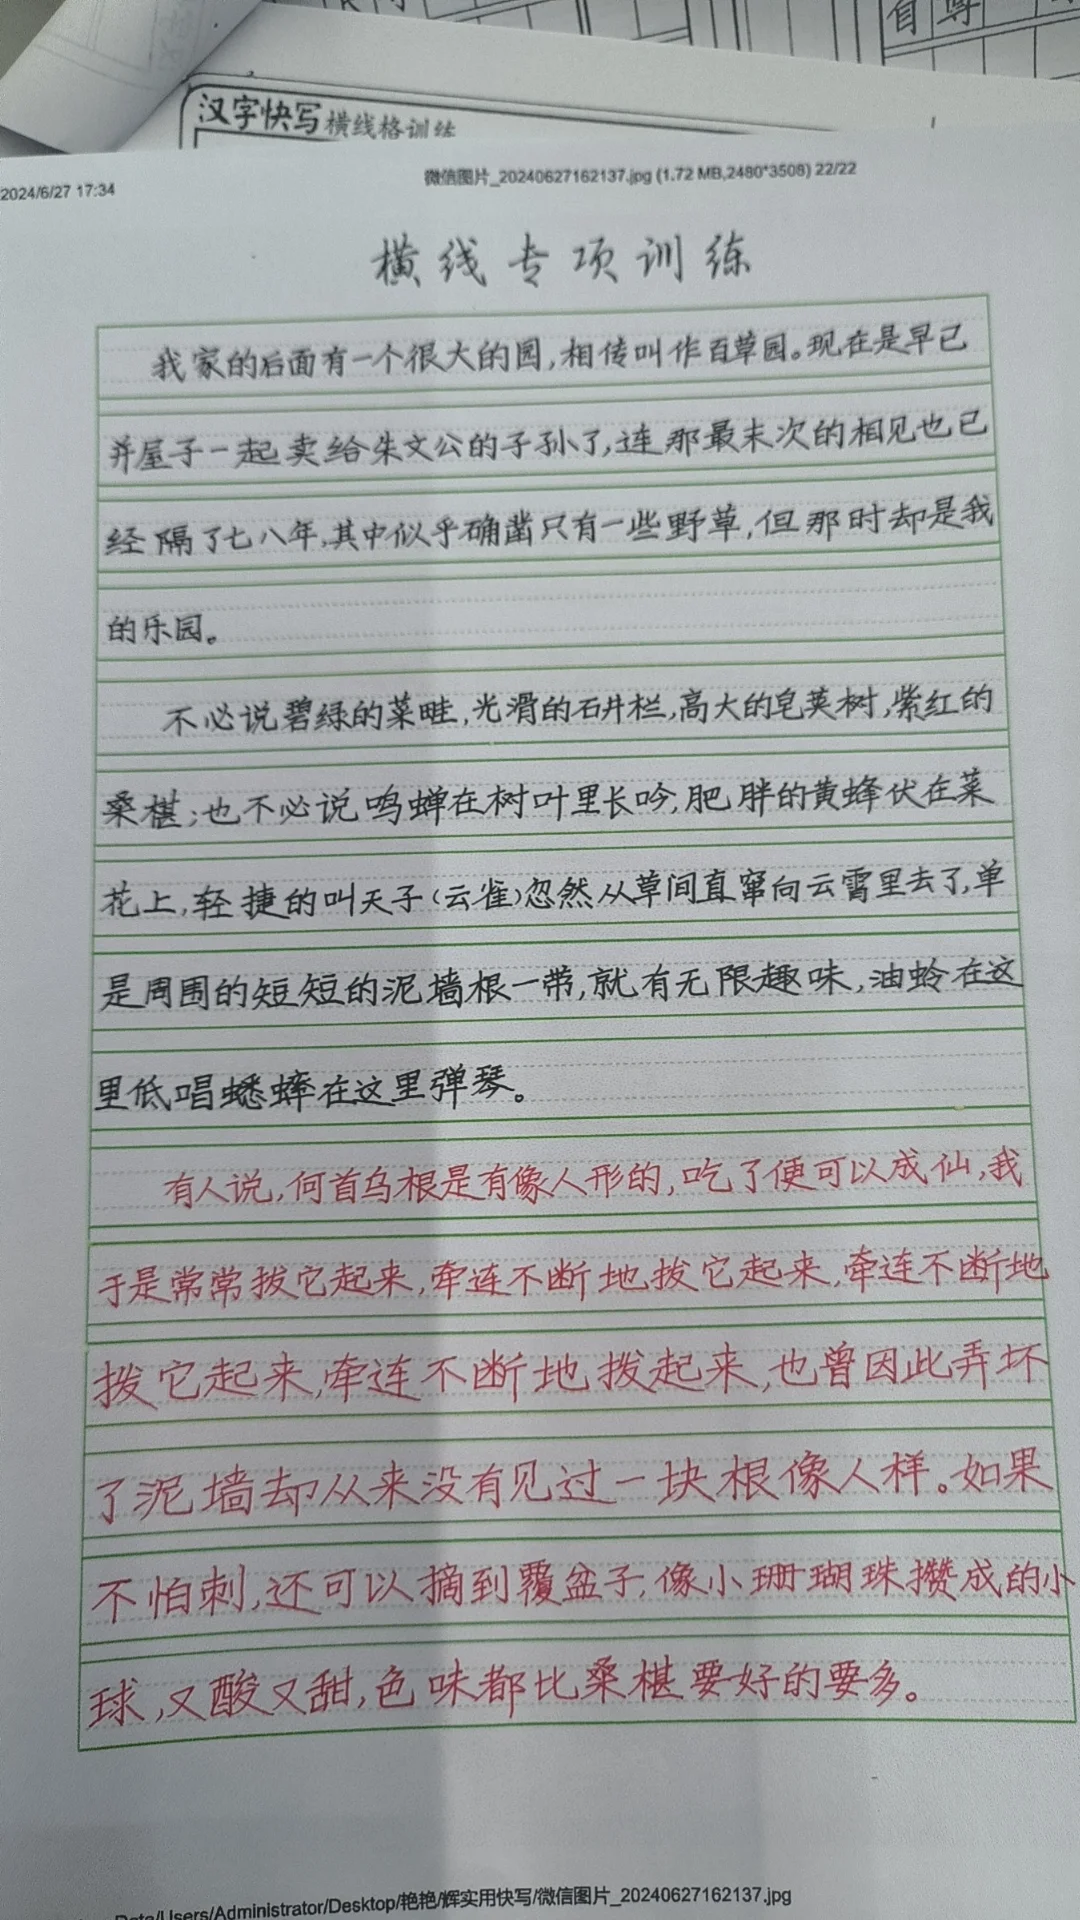 自尊
汉字快写横线格训练
2024/6/27 17:34
微信图片_20240627162137.jpg (1.72 MB,2480*3508) 22/22
横线专项训练
我家的后面有一个很大的园,相传叫作百草园。现在是早已
并屋子一起卖给朱文公的子孙了,连那最末次的相见也已
经隔了七八年,其中似乎确凿只有一些野草,但那时却是我
的乐园。
不必说碧绿的菜畦,光滑的石井栏,高大的皂荚树,紫红的
桑椹;也不必说鸣蝉在树叶里长吟,肥胖的黄蜂伏在菜
花上,轻捷的叫天子(云雀)忽然从草间直窜向云霄里去了,单
是周围的短短的泥墙根一带,就有无限趣味,油蛉在这
里低唱蟋蟀在这里弹琴。
有人说,何首乌根是有像人形的,吃了便可以成仙,我
于是常常拔它起来,牵连不断地拔它起来,牵连不断地
拨它起来,牵连不断地拨起来,也曾因此弄坏
了泥墙却从来没有见过一块根像人样。如果
不怕刺,还可以摘到覆盆子,像小珊瑚珠攒成的小
球,又酸又甜,色味都比桑椹要好的要多。
Data/Users/Administrator/Desktop/艳艳/辉实用快写/微信图片_20240627162137.jpg